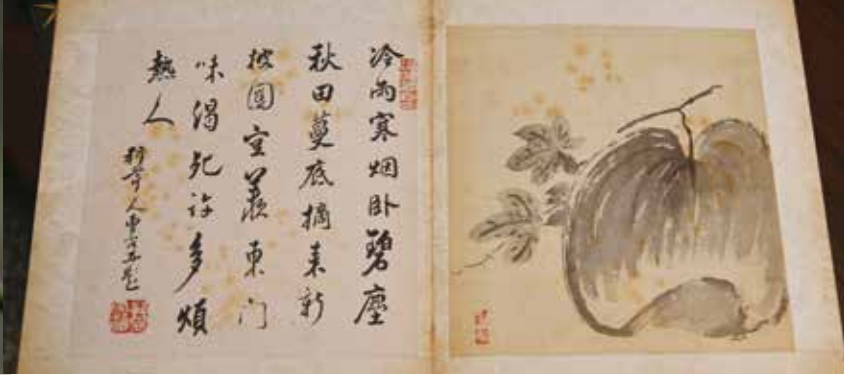 冷雨寒烟卧碧塵
秋田蔓底摘来新
披圖空羡東门
味渴死許多煩
熱人